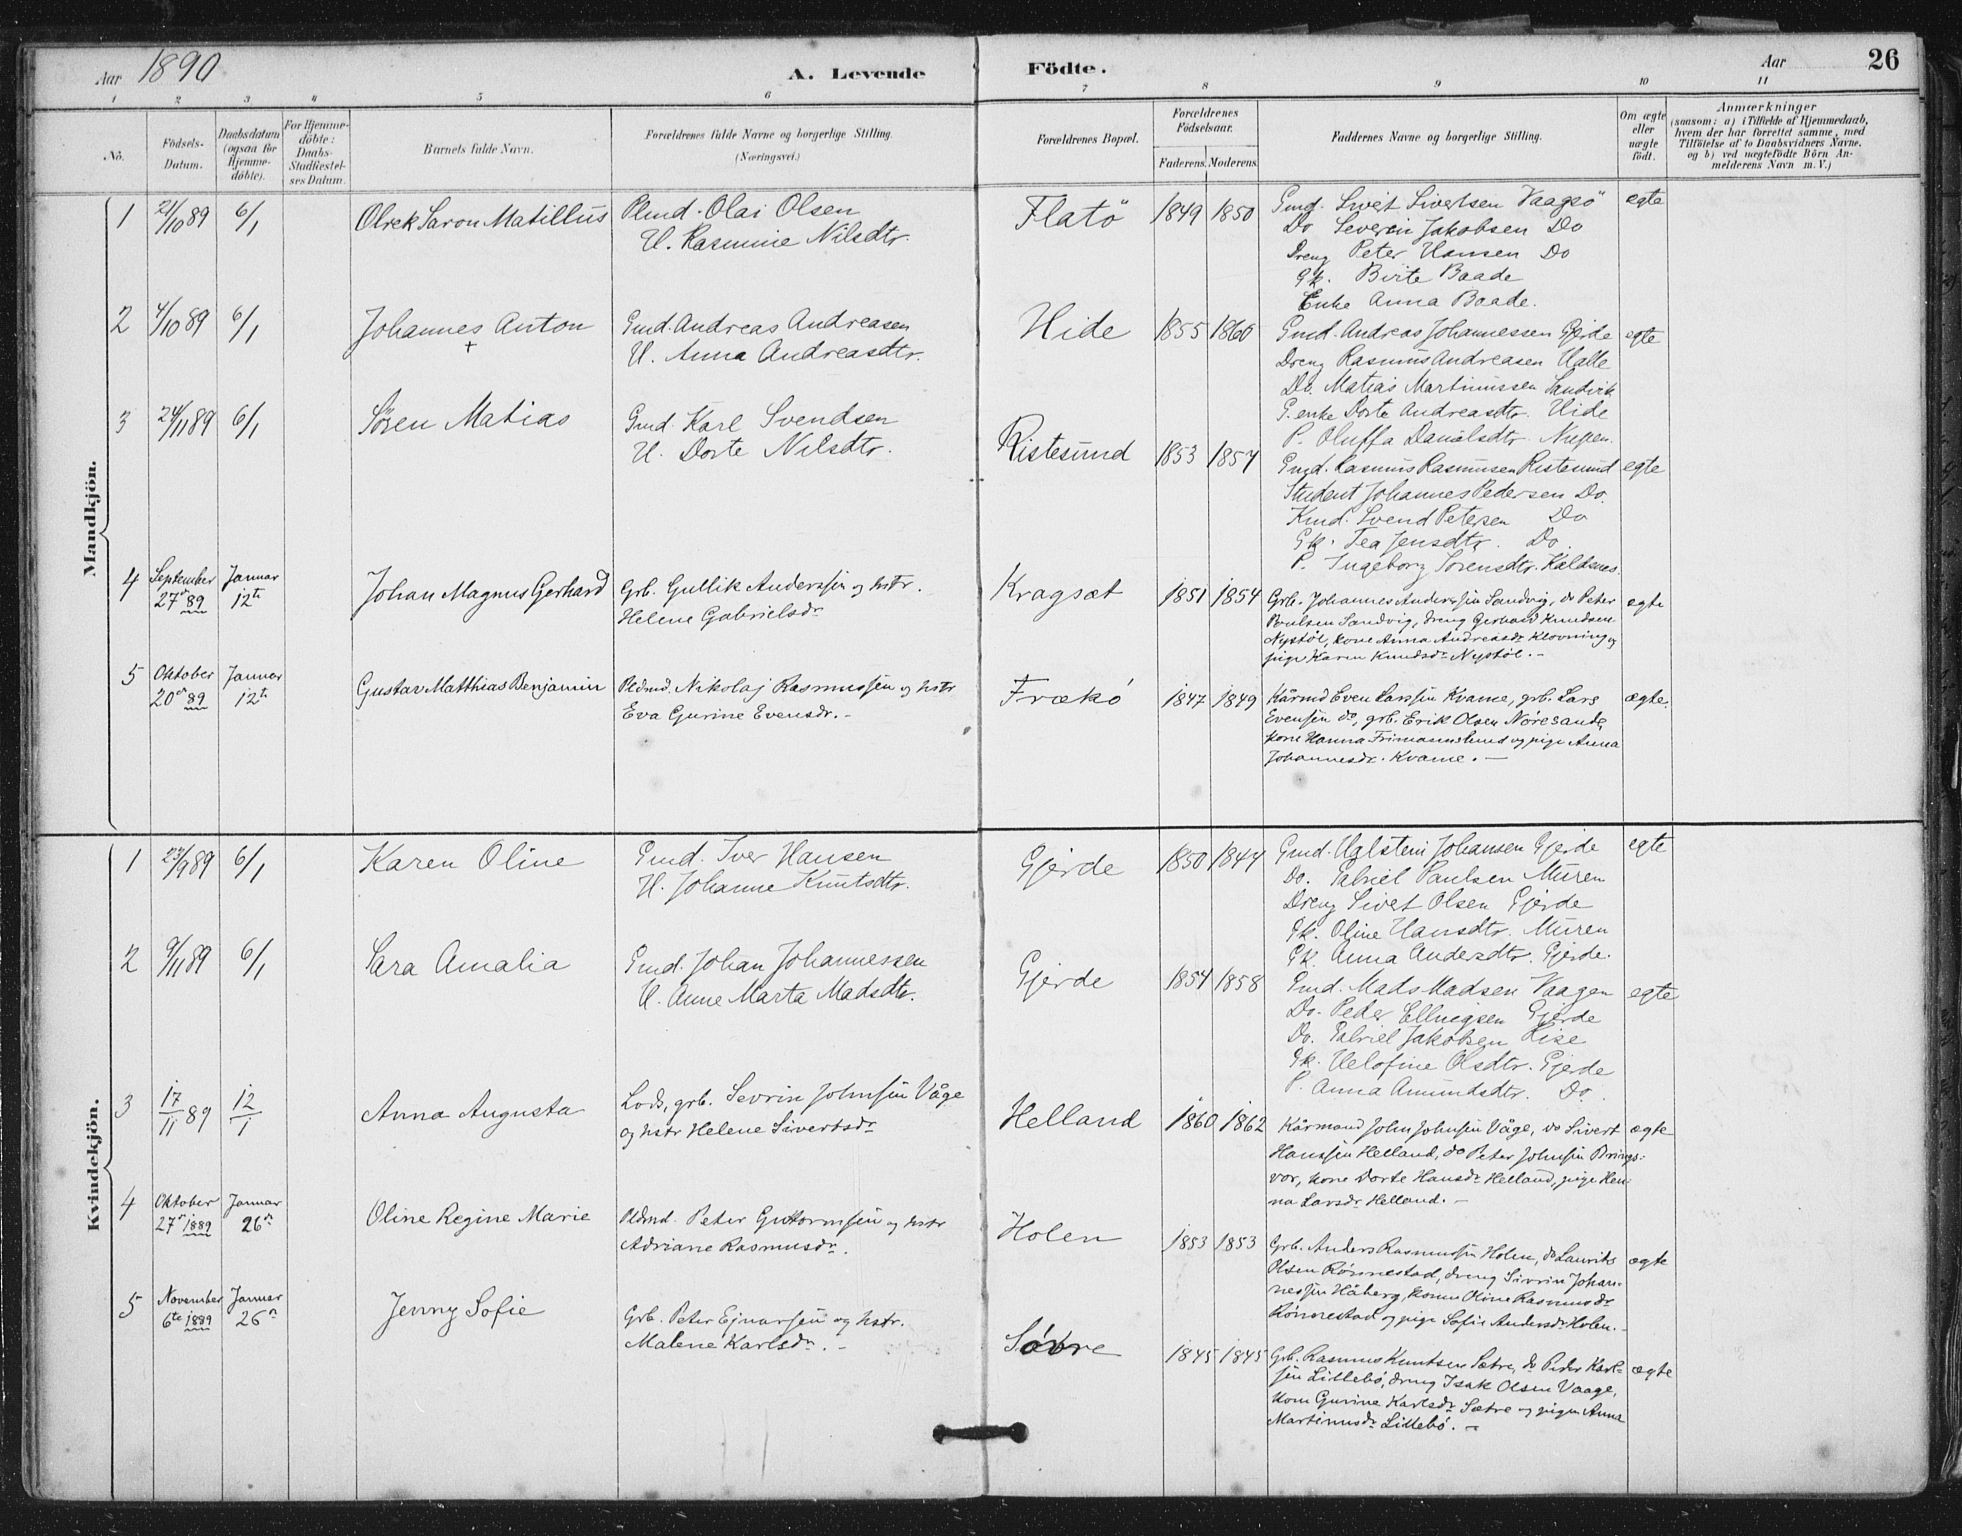 Aar 1890 A. Levende Födte. Aar 26
1 2 3 4 5 6 7 8 9 10 11
No. Födsels-Datum. Daabsdatum (ogsaa for Hjemme-döbte). For Hjemme-döbte: Daabs-Stadfæstelses Datum. Barnets fulde Navn. Forældrenes fulde Navne og borgerlige Stilling. (Næringsvei.) Forældrenes Bopæl. Forældrenes Födselsaar. Faderens. Moderens. Faddernes Navne og borgerlige Stilling. Om ægte eller uægte födt. Anmærkninger (saasom: a) i Tilfælde af Hjemmedaab, hvem der har forrettet samme, med Tilföielse af to Daabsvidners Navne, og b) ved uægtefödte Börn Anmelderens Navn m. V.)
Mandkjön.
1 21/10 89 6/1 Olrek Saron Matillus Plmd. Olai Olsen Flatö 1849 1850 Gmd. Sivert Sivertsen Vaagsö egte
H. Rasmine Nilsdtr. Do Severin Jakobsen Do
Dreng Peter Hansen Do
Gk. Birte Baade
Enke Anna Baade.
2 4/10 89 6/1 Johannes Anton Gmd. Andreas Andreasen Hide 1855 1860 Gmd. Andreas Johannessen Gjerde egte
+ H. Anna Andreasdtr. Dreng Rasmus Andreasen Halle
Do. Matias Martinussen Sandvik
G. enke Dorte Andreasdtr. Hide
P. Oluffa Danielsdtr.
3 24/11 89 6/1 Sören Matias Gmd. Karl Svendsen Ristesund 1853 1857 Gmd. Rasmus Rasmusen Ristesund egte
H. Dorte Nilsdtr. Student Johannes Pedersen Do.
Kmd. Svend Petersen Do
Gk. Tea Jensdtr. Do.
P. Ingeborg Sörensdtr. Kaldnes.
4 September 27de 89 Januar 12te Johan Magnus Gerhard Grb. Gullik Anderssen og hstr. Kragsæt 1851 1854 Grb. Johannes Anderssen Sandvig, do Peter egte
Helene Gabrielsdr Poulsen Sandvig, dreng Gerhard Knudsen
Nystöl, kone Anna Andreasdr Klovning og
pige Karen Knudsdr Nystöl.
5 Oktober 20de 89 Januar 12te Gustav Matthias Benjamin Pldmd. Nikolaj Rasmussen og hstr Frækö 1847 1849 Kårmd Even Larssen Kvame, grb. Lars ægte.
Eva Gurine Evensdr. Evensen do, grb. Erik Olsen Nöresande,
kone Hanna Frimannslund og pige Anna
Johannesdr. Kvame.
Kvindekjön.
1 23/9 89 6/1 Karen Oline Gmd. Iver Hansen Gjerde 1850 1847 Gmd. Halstein Johansen Gjerde egte
H. Johanne Knutsdtr. Do. Gabriel Paulsen Muren
Dreng Sivert Olsen Gjerde
Gk. Oline Hansdtr. Muren
Gk. Anna Andersdtr. Gjerde.
2 9/11 89 6/1 Sara Amalia Gmd. Johan Johannessen Gjerde 1854 1858 Gmd. Mads Madsen Vaagen egte
H. Anne Marta Madsdtr. Do. Peder Gjerde
Do. Gabriel Jakobsen Lise
Gk. Olsdtr. Gjerde
P. Anna Amundsdtr. Do.
3 17/11 89 12/1 Anna Augusta Lods, grb. Sevrin Johnsen Våge Helland 1860 1862 Kårmand John Johnsen Våge, do Sivert ægte
og hstr Helene Sivertsdr Hanssen Helland, do Peter Johnsen Brings-
vor, kone Dorte Hansdr Helland, pige Han-
na Larsdr Helland.
4 Oktober 27de 1889 Januar 26de Oline Regine Marie Pldmd. Peter Guttormsen og hstr Holen 1853 1853 Grb. Anders Rasmussen Holen, do Laurits ægte
Adriane Rasmusdr. Olsen Rönnestad, dreng Sivrin Johan-
nessen Håberg, konen Oline Rasmusdr
Rönnestad og pige Sofie Andersdr Holen.
5 November 6te 1889 Januar 26de Jenny Sofie Grb. Peter Ejnarsen og hstr. Sætre 1845 1845 Grb. Rasmus Knutsen Sætre, do Peder Karl- ægte
Malene Karlsdr. sen Lillebö, dreng Isak Olsen Vaage,
kone Gurine Karlsdr Sætre og pigen Anna
Martinusdr Lillebö.